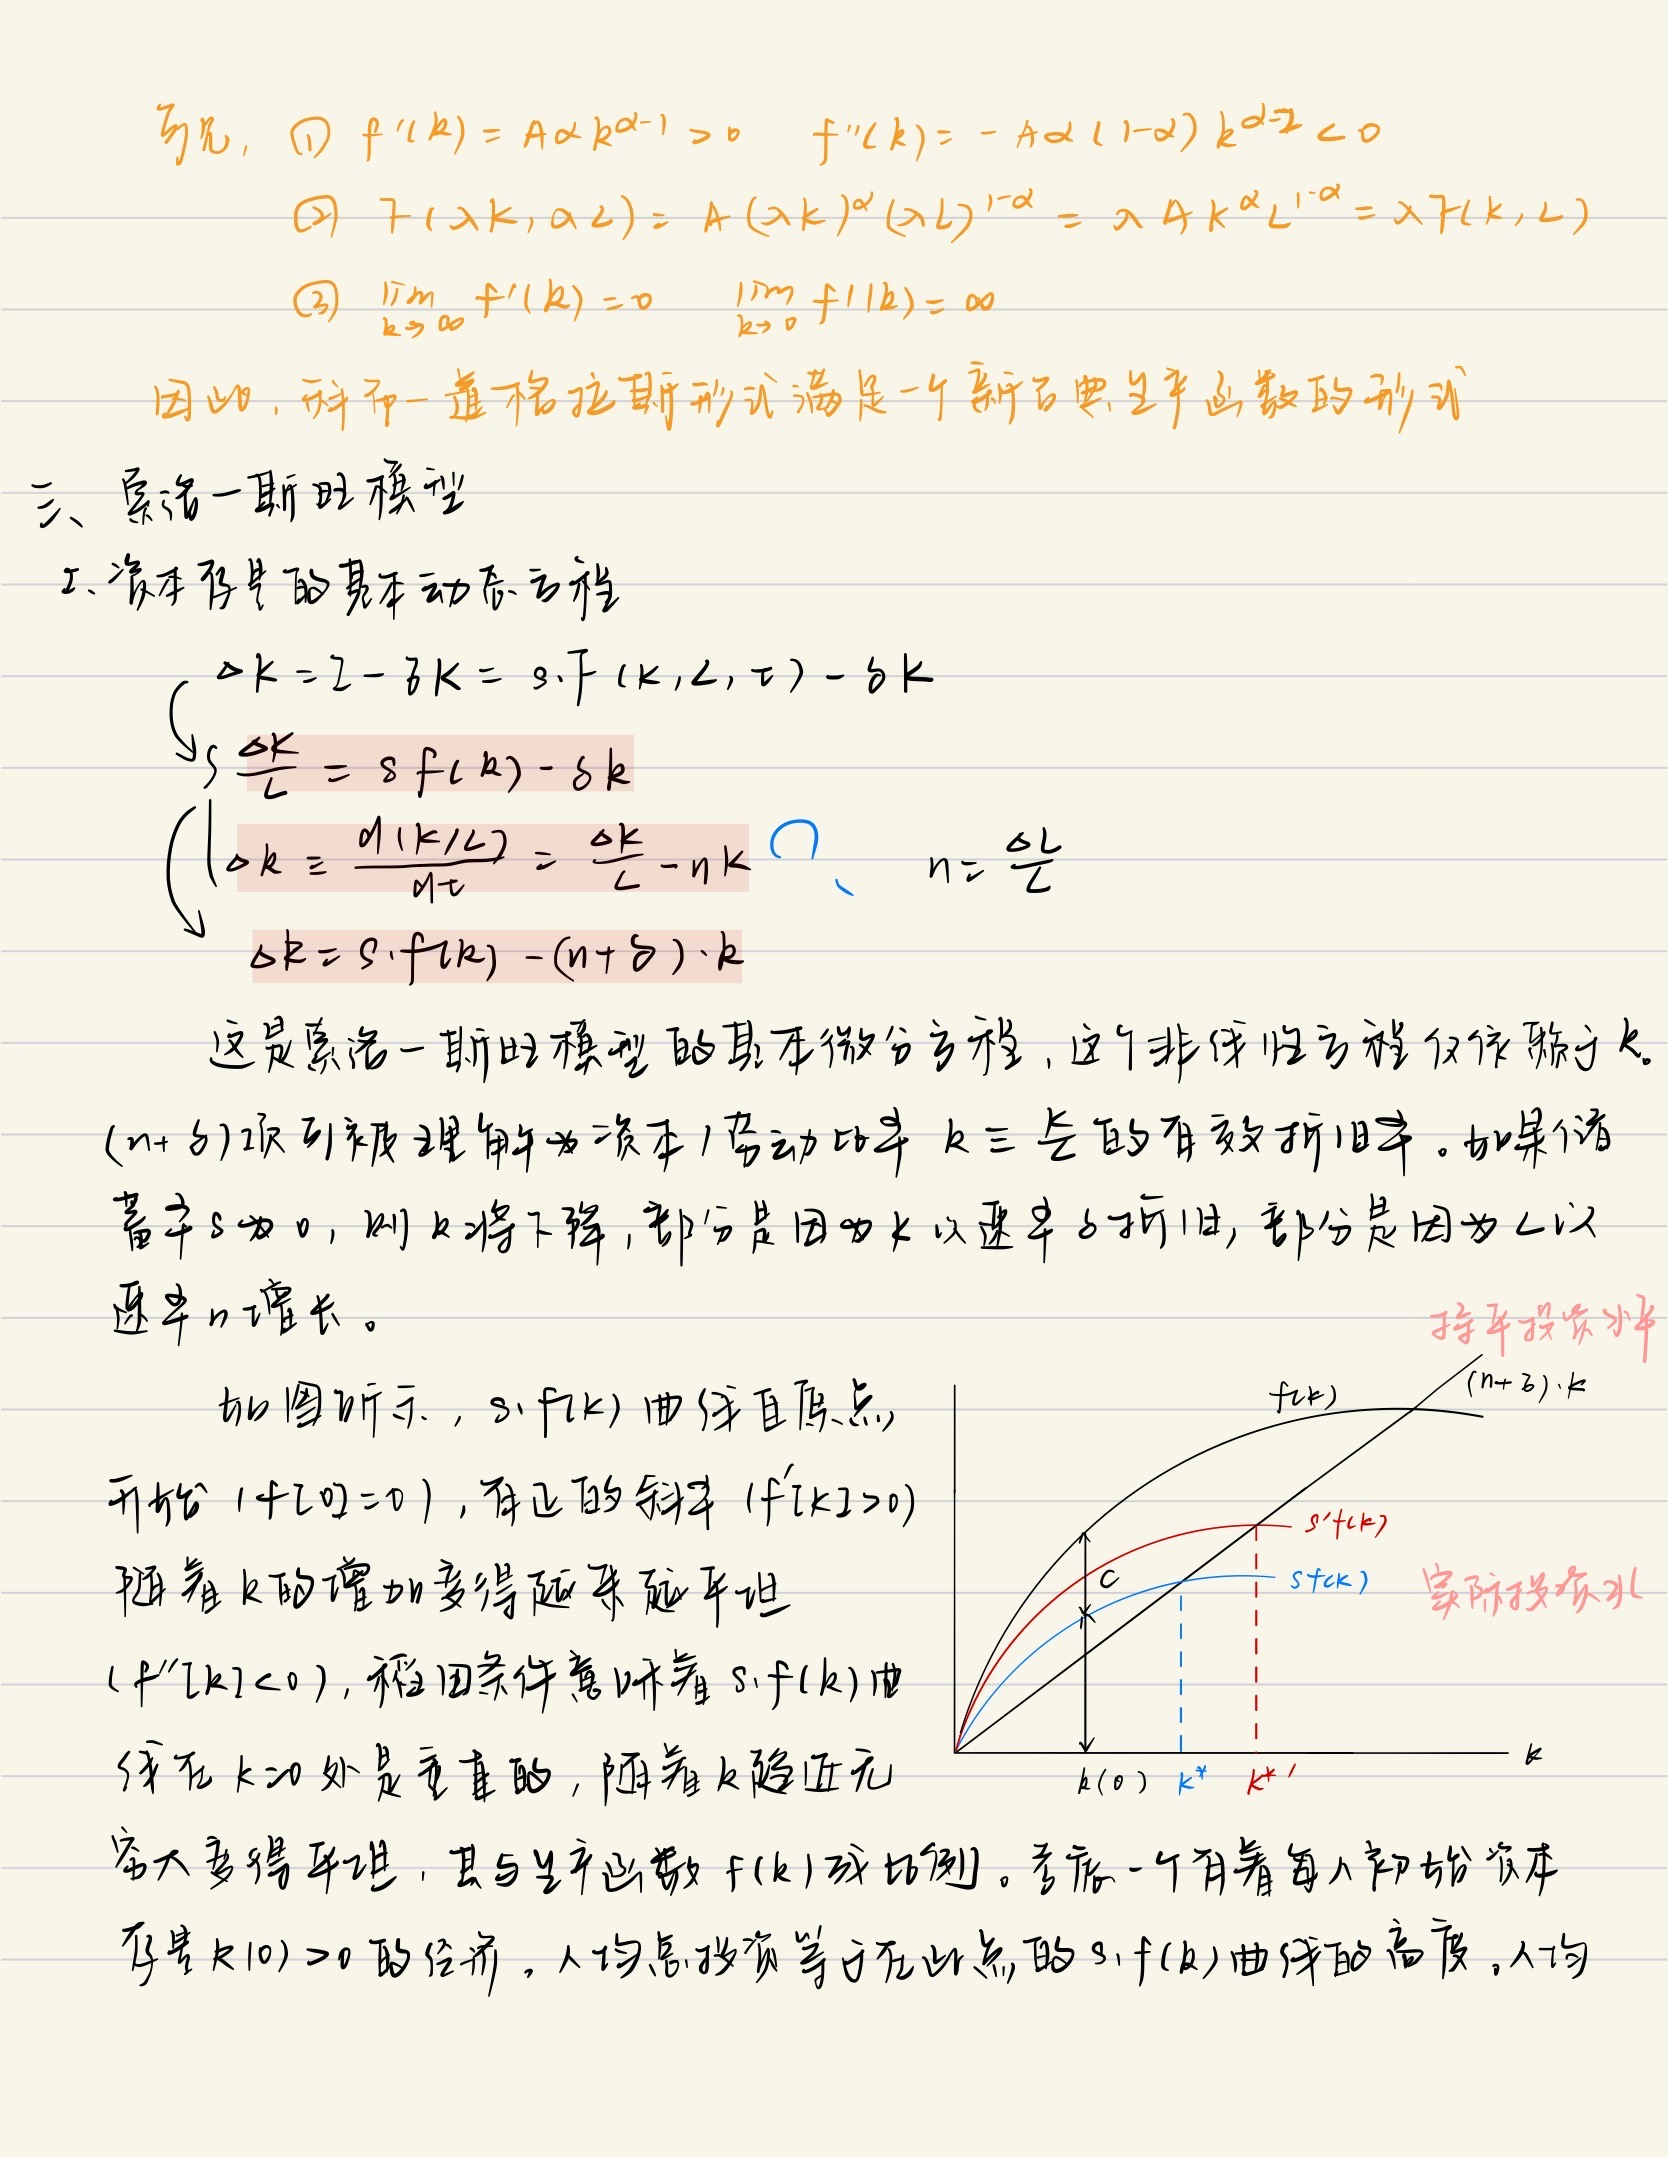 可见, ① f'(k) = Aαk^{α-1} > 0   f''(k) = -Aα(1-α)k^{α-2} < 0
② F(λK, αL) = A(λK)^α(λL)^{1-α} = λAK^αL^{1-α} = λF(K, L)
③ lim_{k→∞} f'(k) = 0   lim_{k→0} f'(k) = ∞
因此, 科布-道格拉斯形式满足一个新古典生产函数的形式
三、索洛-斯旺模型
1、资本存量的基本动态方程
ΔK = I - δK = s·F(K, L, t) - δK
ΔK/L = sf(k) - δk
Δk ≡ d(K/L)/dt = ΔK/L - nk ?   n = ΔL/L
Δk = s·f(k) - (n+δ)·k
这是索洛-斯旺模型的基本微分方程, 这个非线性方程仅依赖于k。
(n+δ)项可被理解为资本/劳动比率 k ≡ K/L 的有效折旧率。如果储
蓄率s为0, 则k将下降, 部分是因为K以速率δ折旧, 部分是因为L以
速率n增长。
持平投资水平
(n+δ)·k
f(k)
如图所示, s·f(k)曲线自原点
开始 (f[0]=0), 有正的斜率 (f'[k]>0)
s'f(k)
随着k的增加变得越来越平坦
c
sf(k)
实际投资水
(f''[k]<0), 稻田条件意味着s·f(k)曲
线在k=0处是垂直的, 随着k趋近无
k
k(0) k* k*'
穷大变得平坦, 其与生产函数f(k)成比例。考虑一个有着每人初始资本
存量k(0)>0的经济。人均总投资等于在此点的s·f(k)曲线的高度。人均